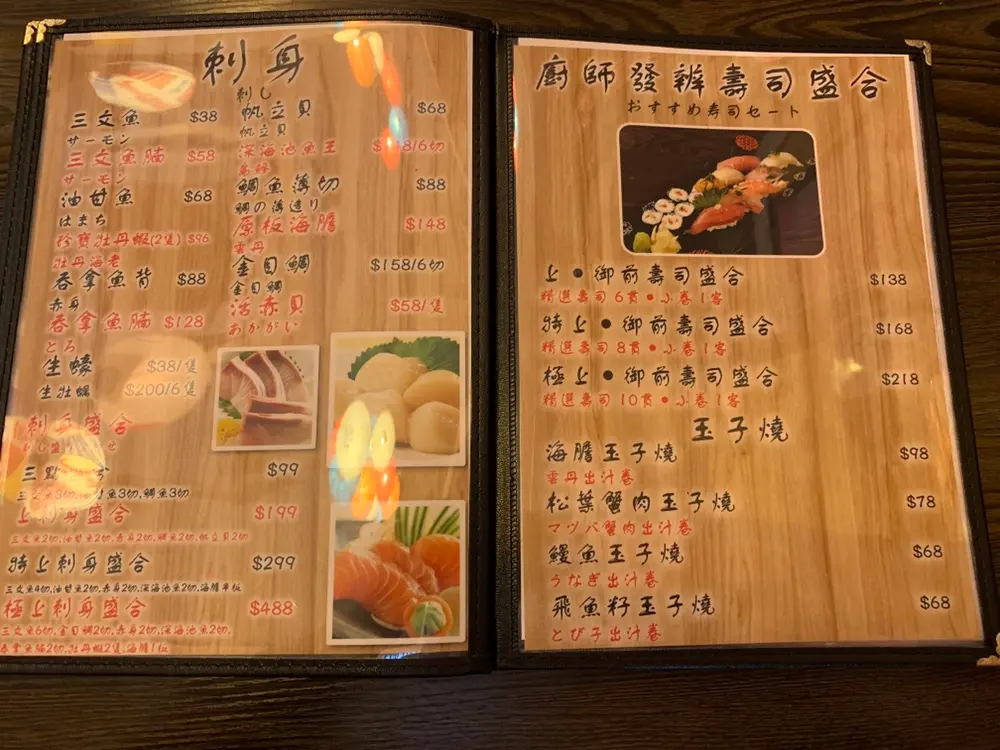 刺身
刺し
三文魚 $38
サーモン
三文魚腩 $58
サーモン
油甘魚 $68
はまち
珍寶牡丹蝦(2隻) $96
牡丹海老
吞拿魚背 $88
赤身
吞拿魚腩 $128
とろ
生蠔 $38/隻
生牡蠣 $200/6隻
帆立貝 $68
帆立貝
深海池魚王 /6切
鯛魚薄切 $88
鯛の薄造り
原板海膽 $148
雲丹
金目鯛 $158/6切
金目鯛
活赤貝 $58/隻
あかがい
刺身盛合
三點 $99
三文魚3切,油甘魚3切,鯛魚3切
上刺身盛合 $199
三文魚2切,油甘魚2切,赤身2切,鯛魚2切,帆立貝2切
特上刺身盛合 $299
三文魚4切,油甘魚2切,赤身2切,深海池魚2切,海膽半板
極上刺身盛合 $488
三文魚6切,金目鯛2切,赤身2切,深海池魚2切,
吞拿魚腩2切,牡丹蝦2隻,海膽1板
廚師發辦壽司盛合
おすすめ寿司セート
上•御前壽司盛合 $138
精選壽司6貫•小卷1客
特上•御前壽司盛合 $168
精選壽司8貫•小卷1客
極上•御前壽司盛合 $218
精選壽司10貫•小卷1客
玉子燒
海膽玉子燒 $98
雲丹出汁卷
松葉蟹肉玉子燒 $78
マツバ蟹肉出汁卷
鰻魚玉子燒 $68
うなぎ出汁卷
飛魚籽玉子燒 $68
とび子出汁卷